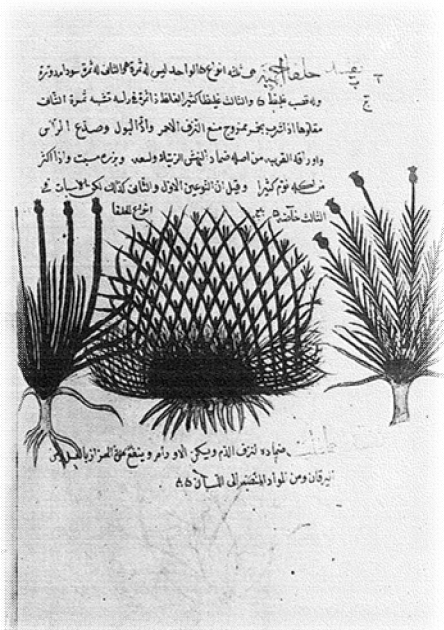 حلفا هي ثلاثة انواع الواحد ليس له ثمرة والثاني له ثمرة سودا مدورة
وله قصب غليظ والثالث غليظ كثير الغلظ ذا ثمرة في راسه تشبه ثمرة الثاني
اذا شرب بخمر ممزوج منع النزف الاحمر وادر البول وصدع الراس
واوراقه القريبة من اصله ضماد لنهش الرتيلا ولسعه وبزره مسبت واذا اكثر
من نوم كثيرا وقيل ان النوعين الاول والثاني كذلك لكن الاسبات في
الثالث خاصة
انواع الحلفا
ضماده لنزف الدم ويسكن الاورام وينفع
اليرقان ومن المواد الى اللسان